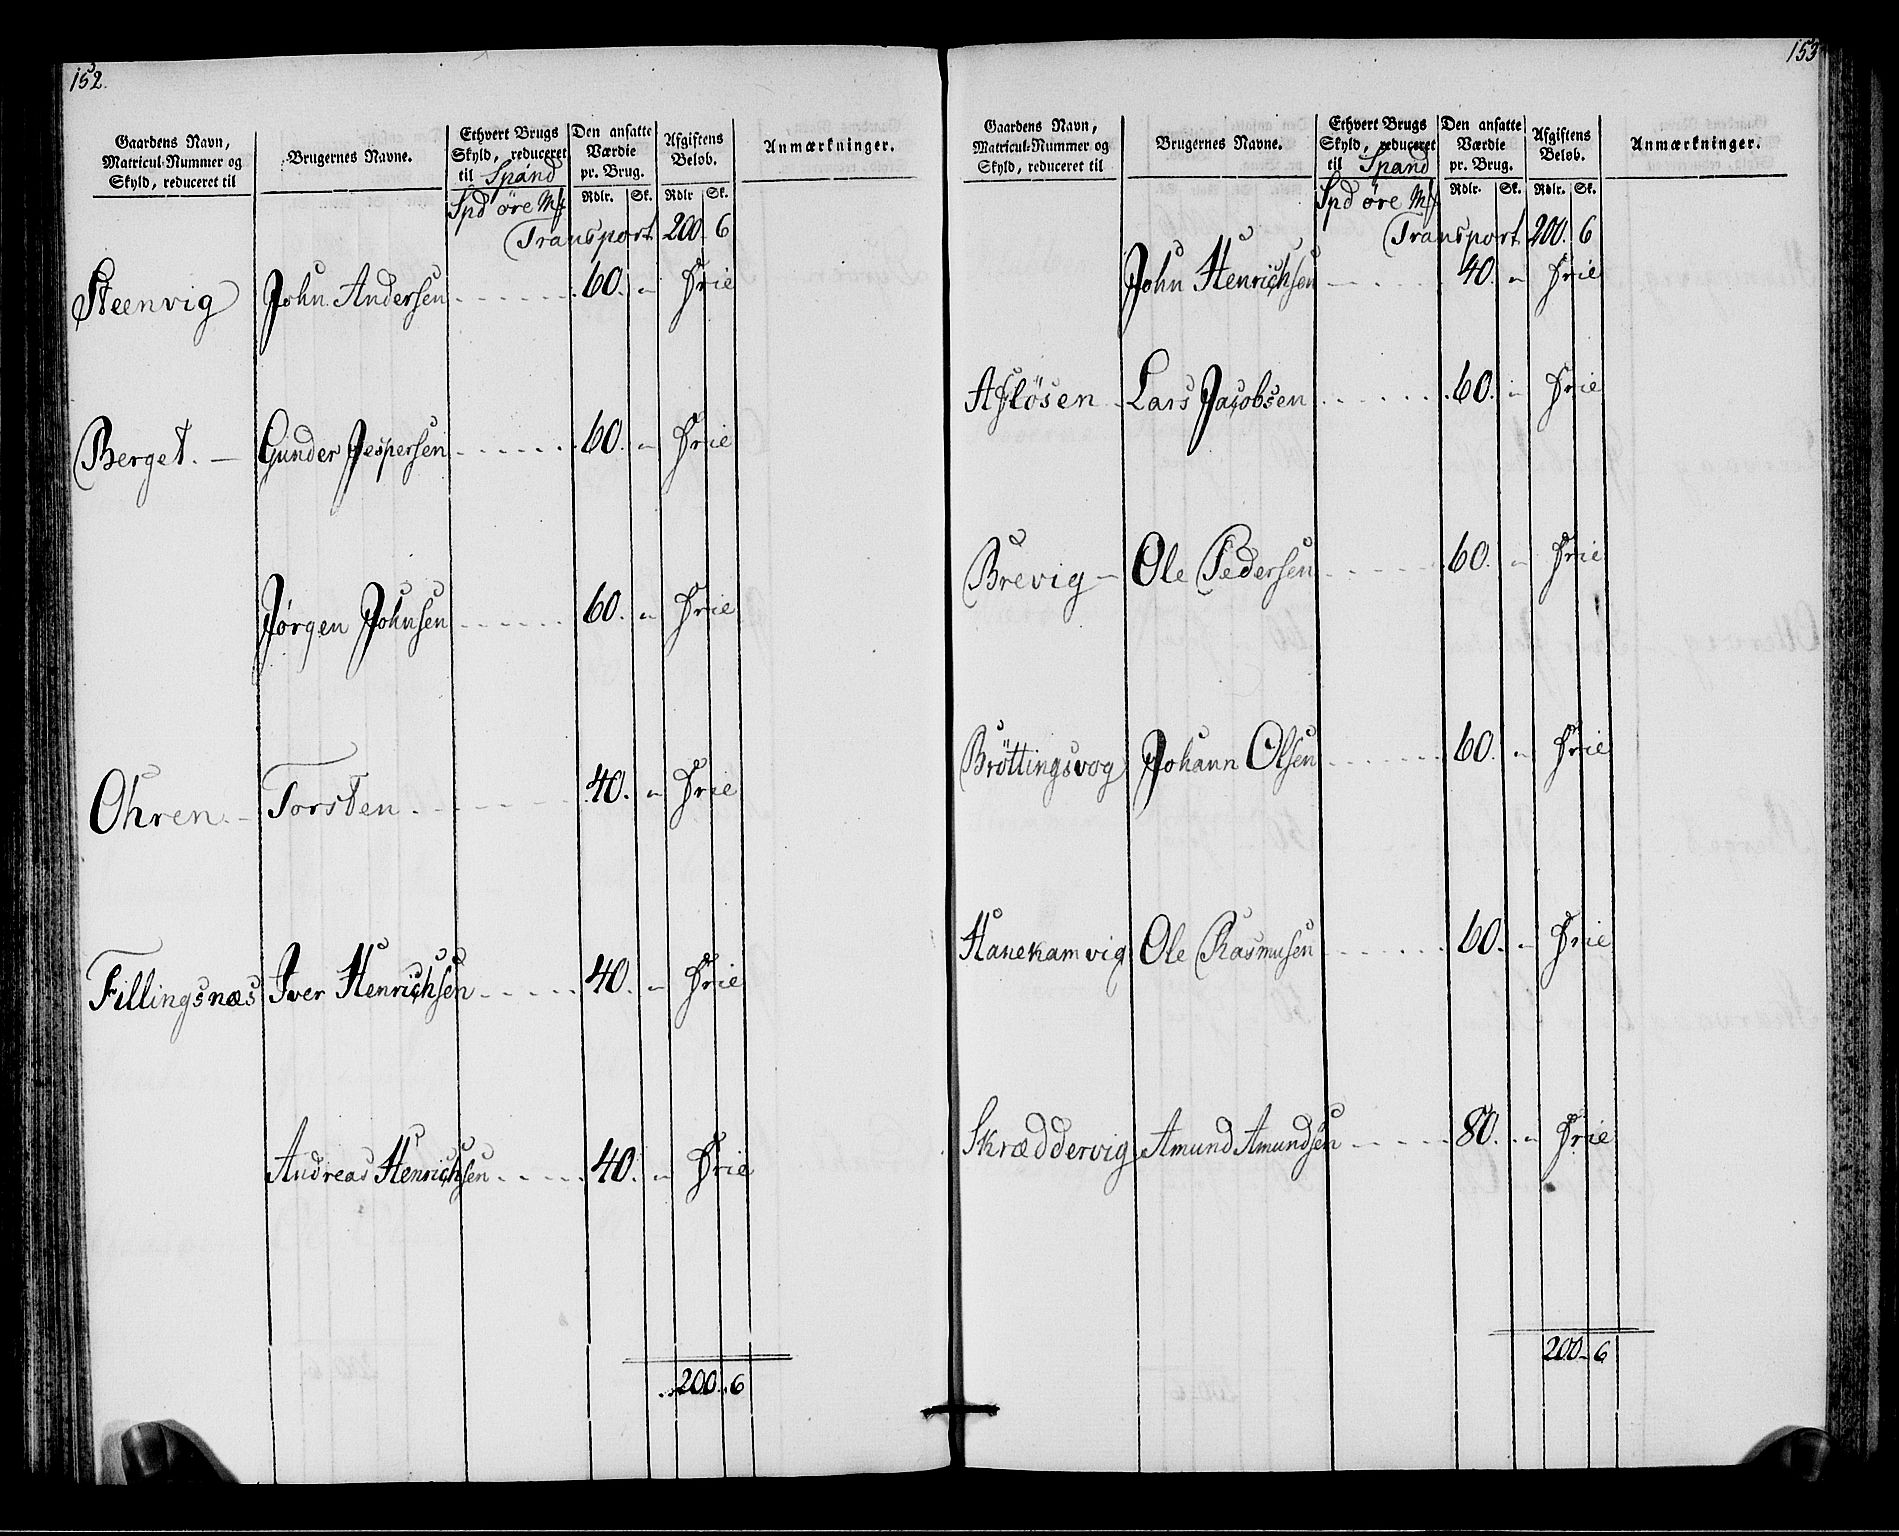 152.
Gaardens Navn, Matricul-Nummer og Skyld, reduceret til
Brugernes Navne.
Ethvert Brugs Skyld, reduceret til Spand
Den ansatte Værdie pr. Brug.
Afgiftens Beløb.
Anmærkninger.
Spd öre Mk Rdlr. Sk. Rdlr Sk.
Transport 200. 6
Steenvig John Andersen 60. „ Frie
Berget. Gunder Jespersen 60. „ Frie
Jørgen Johnsen 60. „ Frie
Ohren. Torsten 40. „ Frie
Fillingsnæs Iver Henrichsen 40. „ Frie
Andreas Henrichsen 40. „ Frie
200. 6
153
Gaardens Navn, Matricul-Nummer og Skyld, reduceret til
Brugernes Navne.
Ethvert Brugs Skyld, reduceret til Spand
Den ansatte Værdie pr. Brug.
Afgiftens Beløb.
Anmærkninger.
Spd öre Mk Rdlr. Sk. Rdlr. Sk.
Transport 200. 6
John Henrichsen 40. „ Frie
Aflösen Lars Jacobsen 60. „ Frie
Brevig Ole Pedersen 60. „ Frie
Bröttingsvog Johann Olsen 60. „ Frie
Hanekamvig Ole Rasmusen 60. „ Frie
Skræddervig Amund Amundsen 80. „ Frie
200. 6